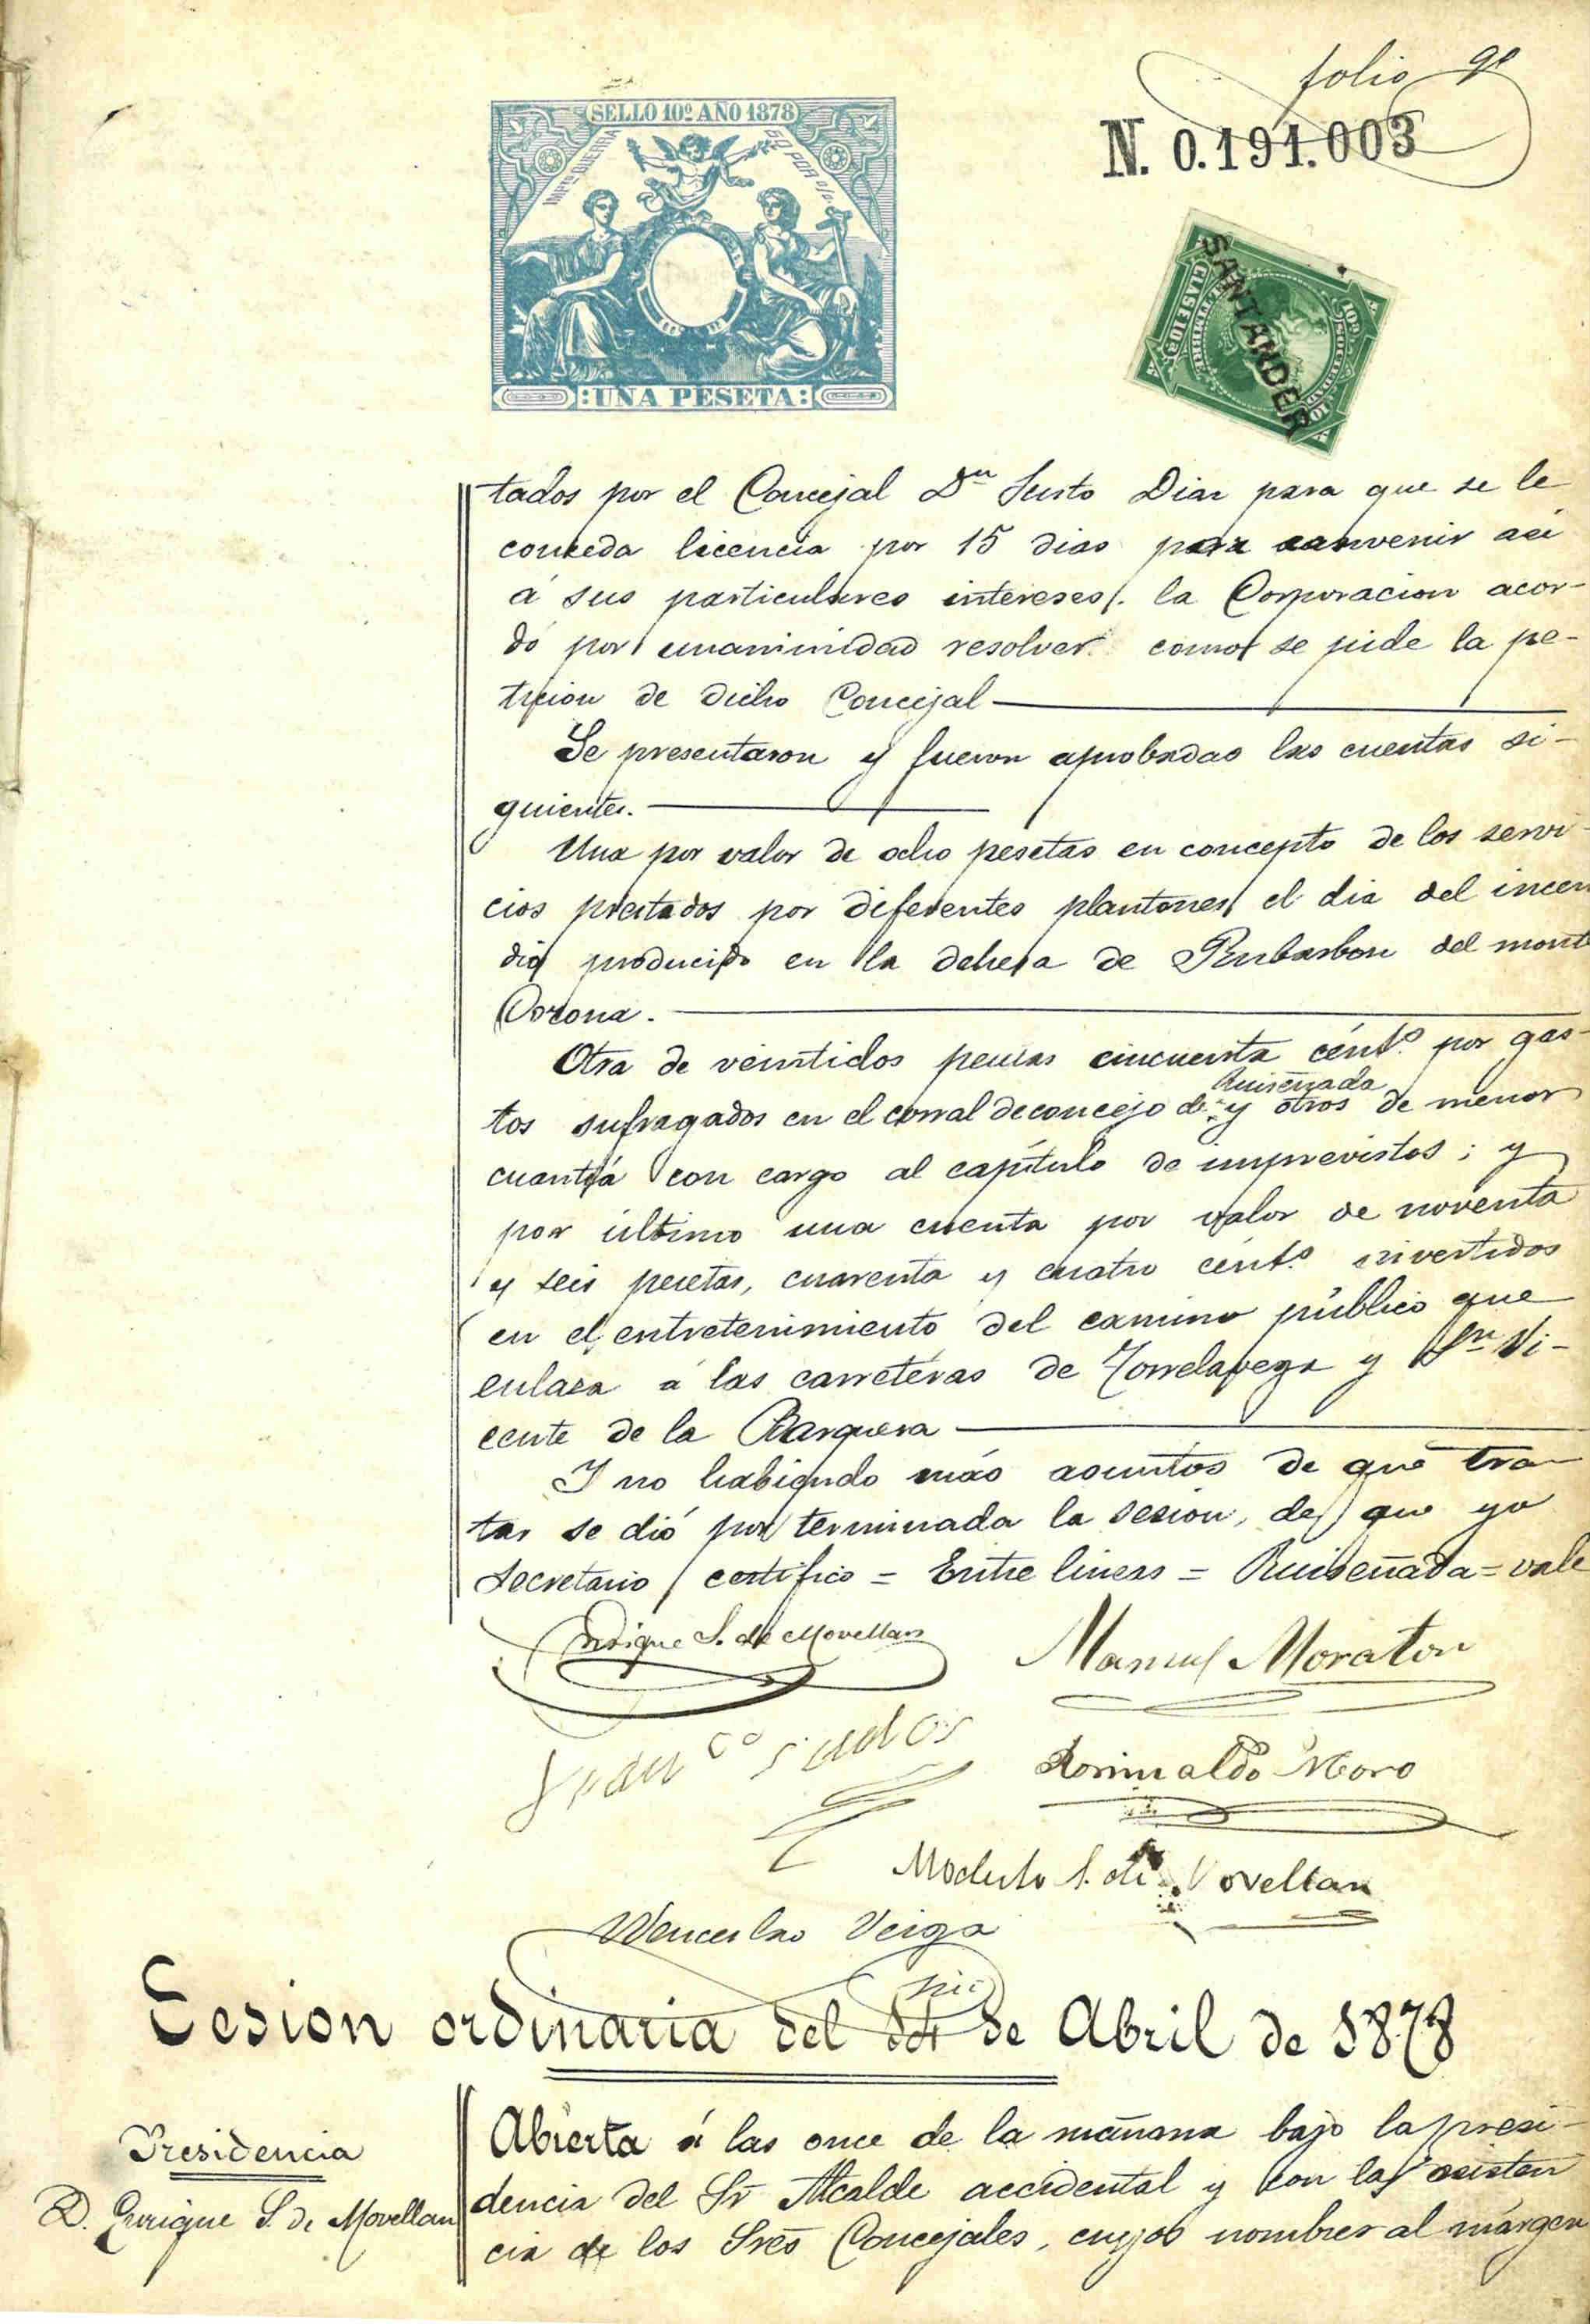 folio 9º
N. 0.191.003
SELLO 10º AÑO 1878
IMPTO DE GUERRA 50 POR 0/0
UNA PESETA
SANTANDER
tados por el Concejal Dn Justo Diaz para que se le
conceda licencia por 15 dias para convenir asi
á sus particulares intereses, la Corporacion acor-
dó por unanimidad resolver como se pide la pe-
ticion de dicho Concejal
Se presentaron y fueron aprobadas las cuentas si-
guientes.
Una por valor de ocho pesetas en concepto de los servi-
cios prestados por diferentes plantones el dia del incen
dio producido en la dehesa de Rubarbon del monte
Corona.
Otra de veintidos pesetas cincuenta cénts por gas-
Ruiseñada
tos sufragados en el corral de concejo de y otros de menor
cuantía con cargo al capítulo de imprevistos; y
por último una cuenta por valor de noventa
y seis pesetas, cuarenta y cuatro cénts invertidos
en el entretenimiento del camino público que
enlaza á las carreteras de Torrelavega y Sn Vi-
cente de la Barquera
Y no habiendo más asuntos de que tra-
tar se dió por terminada la sesion, de que yo
secretario certifico = Entre lineas = Ruiseñada = vale
Enrique S. de Movellan
Manuel Moraton
Franco
Romualdo Moro
Modesto S. de Movellan
Wenceslao Veiga
srio
Sesion ordinaria del 14 de Abril de 1878
Presidencia
D. Enrique S. de Movellan
Abierta á las once de la mañana bajo la presi-
dencia del Sr Alcalde accidental y con la asisten
cia de los Sres Concejales, cuyos nombres al márgen